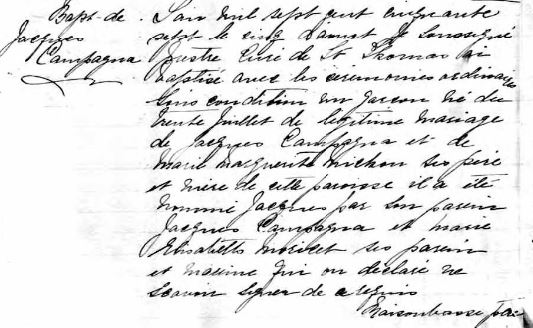 Bapt. de
Jacques
Campagna
L'an mil sept cent cinquante
sept le cinq d'aoust je soussigné
Prestre Curé de St Thomas ai
baptisé avec les ceremonies ordinaires
sous condition un garcon né du
trente Juillet de legitime mariage
de Jacques Campagna et de
Marie Marguerite Michon ses père
et mère de cette paroisse il a été
nommé Jacques par son parein
Jacques Campagna et marie
Elisabeth ses parein
et mareine qui on declaré ne
scavoir signer de ce requis
Maisonbasse ptre